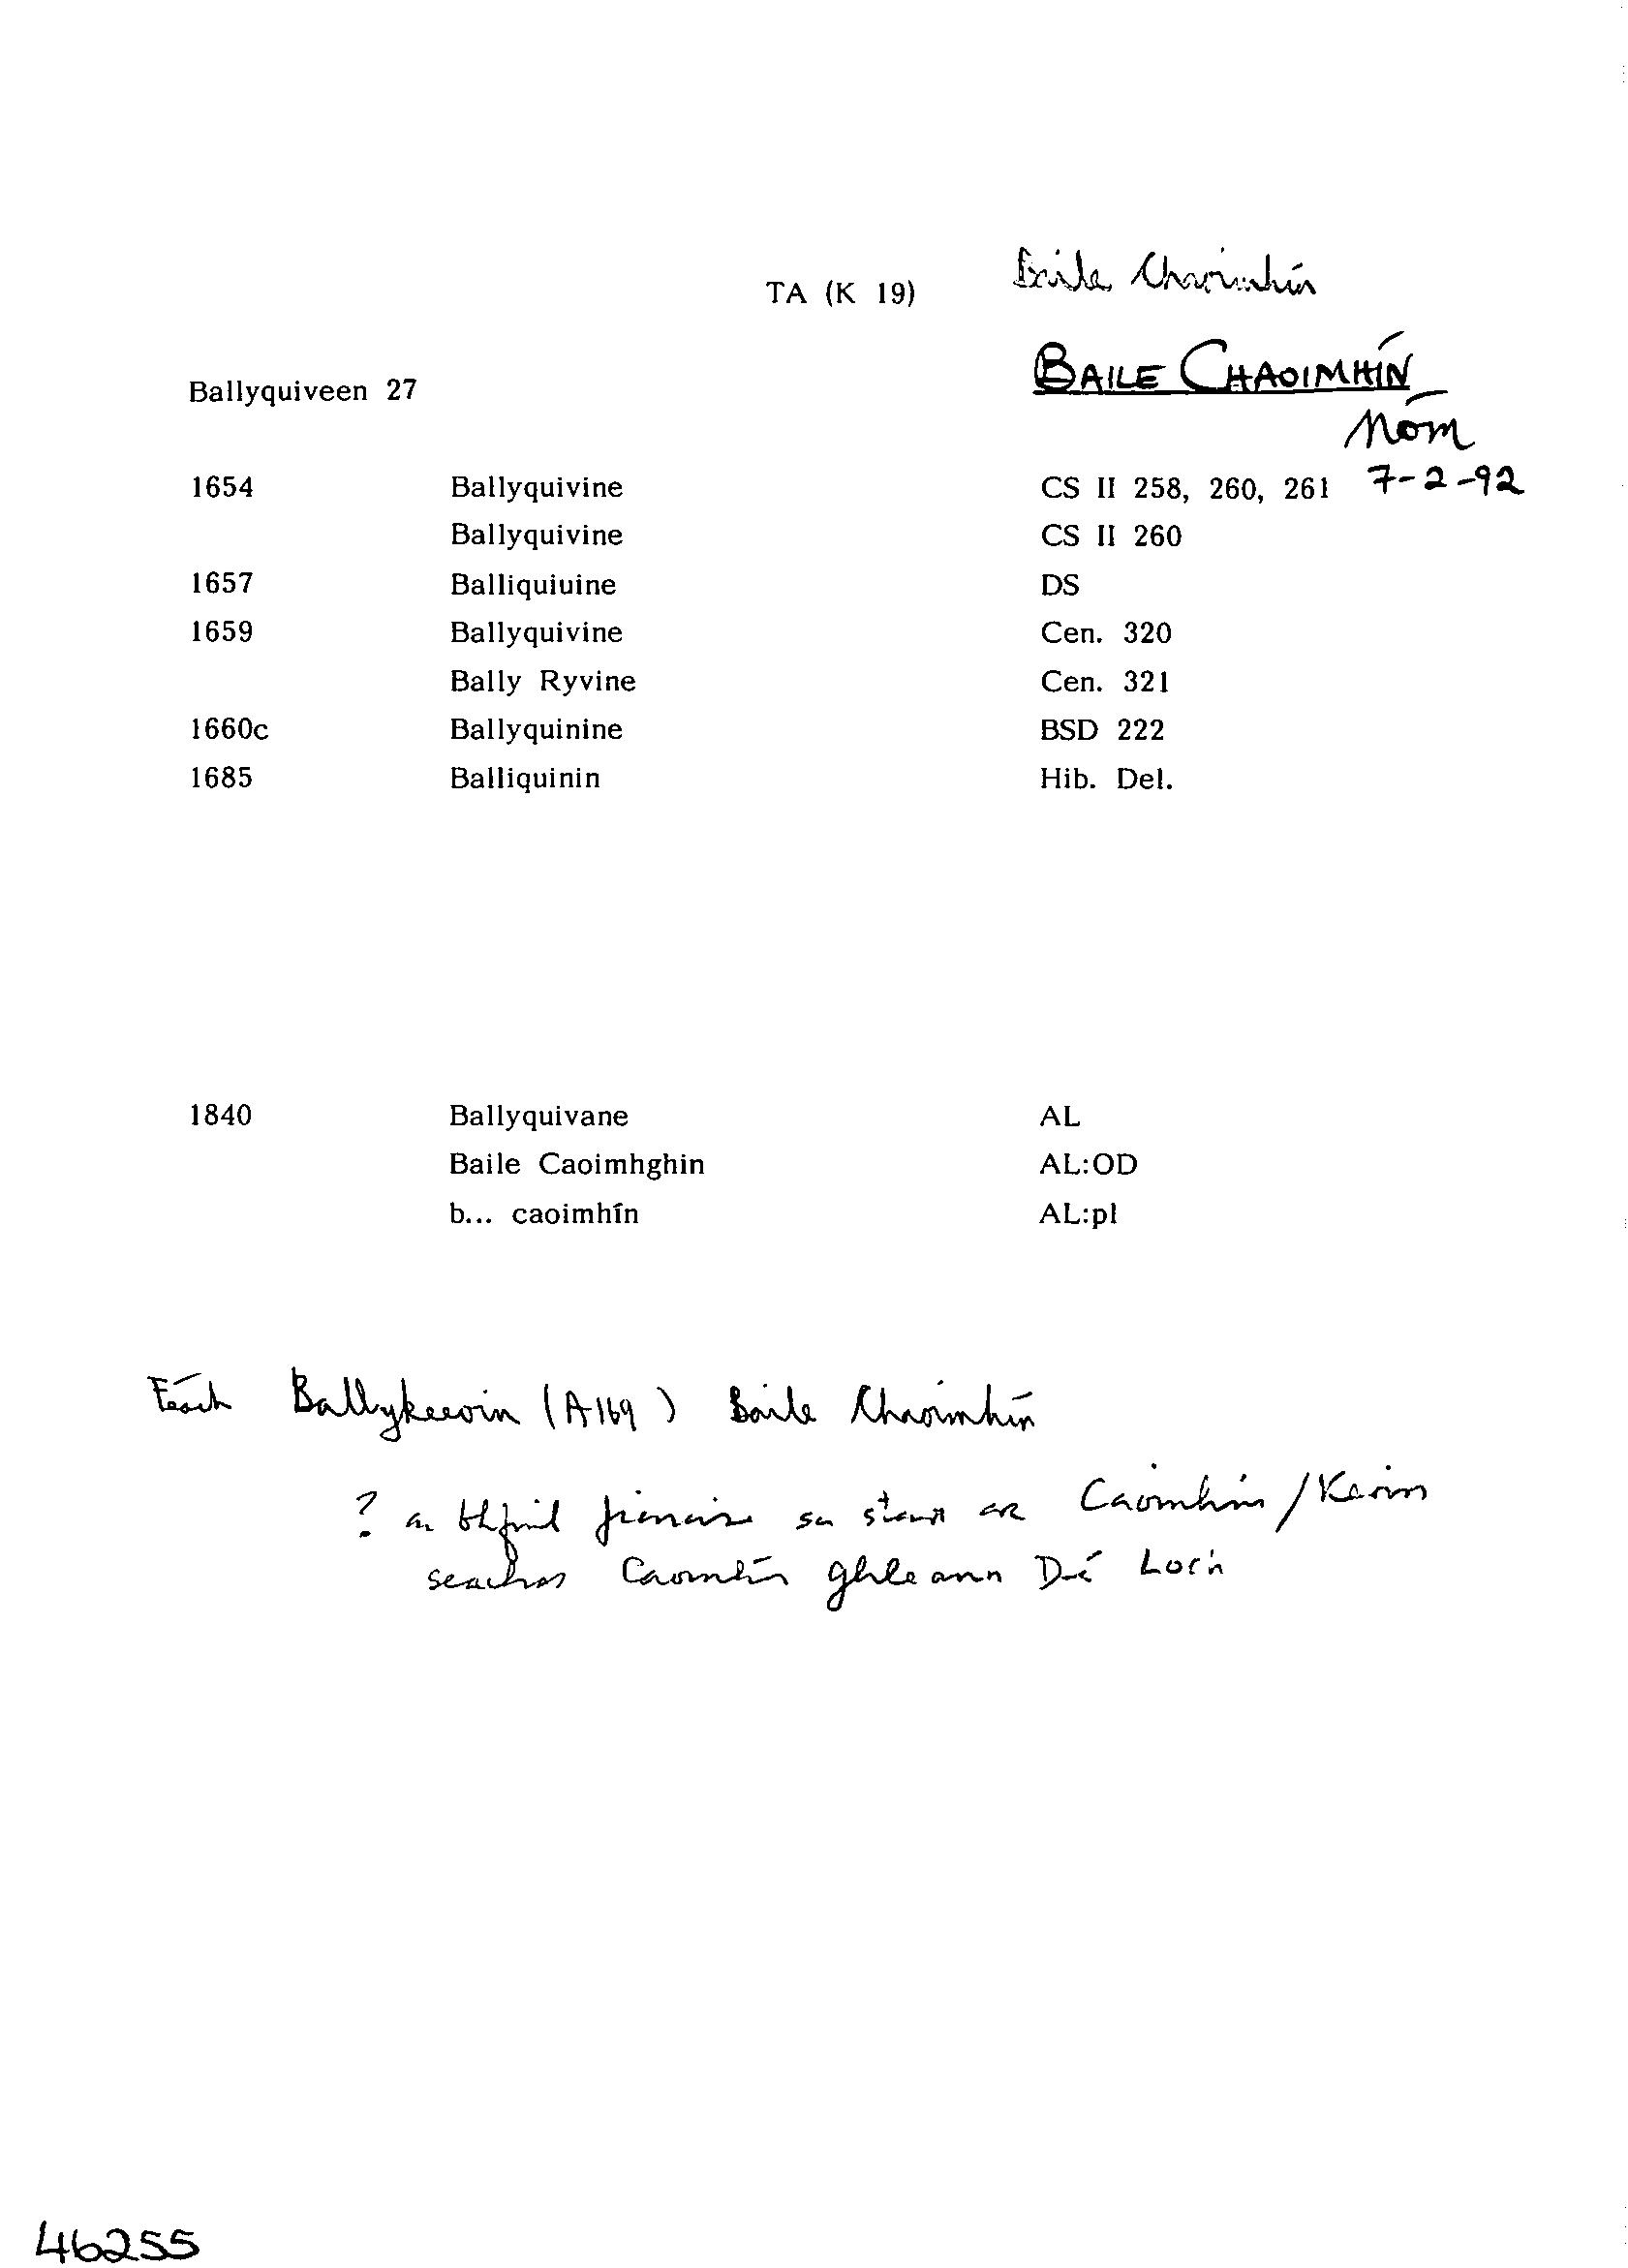 TA (K 19) Baile Chaoimhín
Ballyquiveen 27 BAILE CHAOIMHÍN
NÓM
1654 Ballyquivine CS II 258, 260, 261 7-2-92
Ballyquivine CS II 260
1657 Balliquiuine DS
1659 Ballyquivine Cen. 320
Bally Ryvine Cen. 321
1660c Ballyquinine BSD 222
1685 Balliquinin Hib. Del.
1840 Ballyquivane AL
Baile Caoimhghin AL:OD
b... caoimhín AL:pl
Féach Ballykeevin (A169) Baile Chaoimhín
? an bhfuil fianaise sa stair ar Caoimhín/Kevin
seachas Caoimhín Ghleann Dá Loch
46255